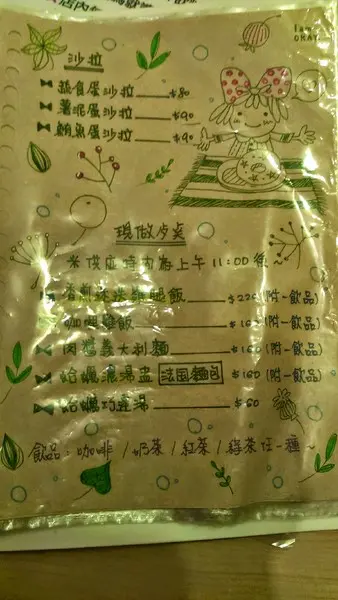 店內
I am OKAY.
沙拉
蔬食蛋沙拉 $80
薯泥蛋沙拉 $90
鮪魚蛋沙拉 $90
現做
供應時間為上午 11:00 後~
香煎 雞腿飯 $220 (附一飲品)
咖哩雞飯 (附一飲品)
肉醬義大利麵 $160 (附一飲品)
蛤蠣濃湯盅 法國麵包 $160 (附一飲品)
蛤蠣巧達湯 $60
飲品:咖啡 / 奶茶 / 紅茶 / 綠茶 任一種~